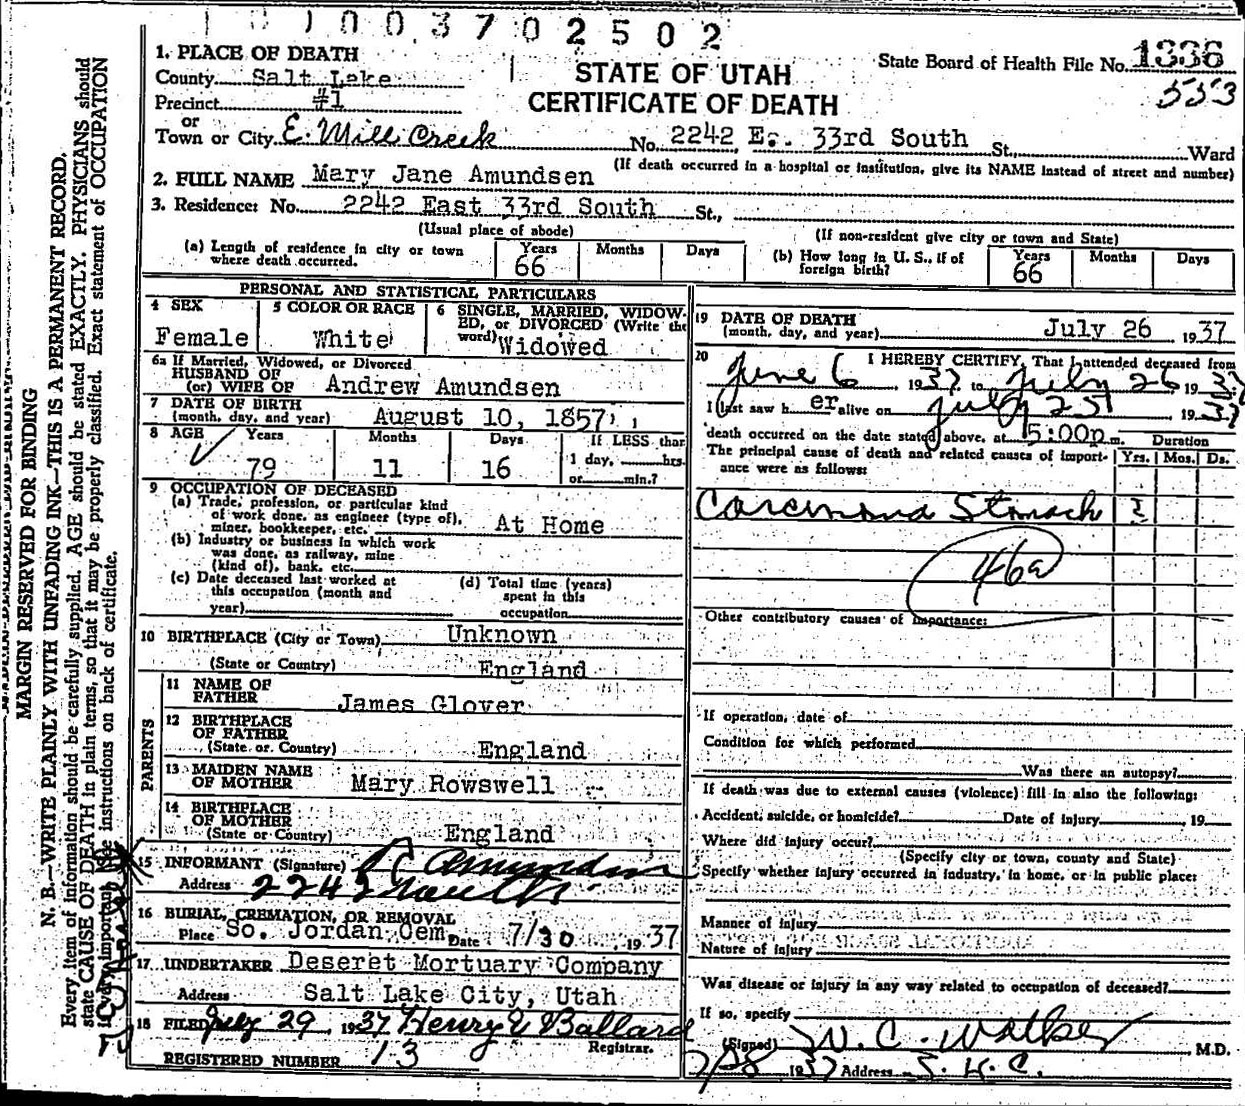 1 0 1 0 0 3 7 0 2 5 0 2
1. PLACE OF DEATH
County Salt Lake
Precinct #1
or
Town or City E. Mill Creek
STATE OF UTAH
CERTIFICATE OF DEATH
State Board of Health File No. 1336
553
No. 2242 E. 33rd South St., Ward
(If death occurred in a hospital or institution, give its NAME instead of street and number)
2. FULL NAME Mary Jane Amundsen
3. Residence: No. 2242 East 33rd South St.,
(Usual place of abode)
(If non-resident give city or town and State)
(a) Length of residence in city or town where death occurred. Years 66 Months Days
(b) How long in U. S., if of foreign birth? Years 66 Months Days
PERSONAL AND STATISTICAL PARTICULARS
4 SEX Female
5 COLOR OR RACE White
6 SINGLE, MARRIED, WIDOWED, or DIVORCED (Write the word) Widowed
6a If Married, Widowed, or Divorced
HUSBAND OF
(or) WIFE OF Andrew Amundsen
7 DATE OF BIRTH
(month, day, and year) August 10, 1857
8 AGE Years 79 Months 11 Days 16
If LESS than
1 day, hrs.
or min.?
9 OCCUPATION OF DECEASED
(a) Trade, profession, or particular kind
of work done, as engineer (type of),
miner, bookkeeper, etc. At Home
(b) Industry or business in which work
was done, as railway, mine
(kind of), bank, etc.
(c) Date deceased last worked at
this occupation (month and
year)
(d) Total time (years)
spent in this
occupation
10 BIRTHPLACE (City or Town) Unknown
(State or Country) England
PARENTS
11 NAME OF
FATHER James Glover
12 BIRTHPLACE
OF FATHER
(State or Country) England
13 MAIDEN NAME
OF MOTHER Mary Rowswell
14 BIRTHPLACE
OF MOTHER
(State or Country) England
15 INFORMANT (Signature) Amundsen
Address 2242
16 BURIAL, CREMATION, OR REMOVAL
Place So. Jordan Cem. Date 7/30 1937
17 UNDERTAKER Deseret Mortuary Company
Address Salt Lake City, Utah
18 FILED July 29 1937 Henry Ballard
Registrar.
REGISTERED NUMBER 13
19 DATE OF DEATH
(month, day, and year) July 26 1937
20 I HEREBY CERTIFY, That I attended deceased from
June 6 1937 to July 26 1937
I last saw her alive on July 25 1937
death occurred on the date stated above, at 5:00p m. Duration
The principal cause of death and related causes of importance were as follows: Yrs. Mos. Ds.
Stomach
46a
Other contributory causes of importance:
If operation, date of
Condition for which performed
Was there an autopsy?
If death was due to external causes (violence) fill in also the following:
Accident, suicide, or homicide? Date of injury 19
Where did injury occur?
(Specify city or town, county and State)
Specify whether injury occurred in industry, in home, or in public place:
Manner of injury
Nature of injury
Was disease or injury in any way related to occupation of deceased?
If so, specify
(Signed) W. C. Walker, M.D.
7/28 1937 Address S. L. C.
MARGIN RESERVED FOR BINDING
N. B.—WRITE PLAINLY WITH UNFADING INK—THIS IS A PERMANENT RECORD.
Every item of information should be carefully supplied. AGE should be stated EXACTLY. PHYSICIANS should
state CAUSE OF DEATH in plain terms, so that it may be properly classified. Exact statement of OCCUPATION
is very important. See instructions on back of certificate.